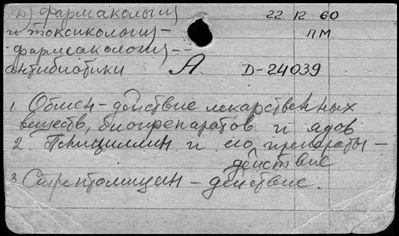 Д) фармакология 22 12 60
и токсикология - П.М.
фармакология -
антибиотики А. D-24039
1. Обмен - действие лекарственных
веществ, биопрепаратов и ядов
2. Пенициллин и его препараты -
действие
3. Стрептомицин - действие.